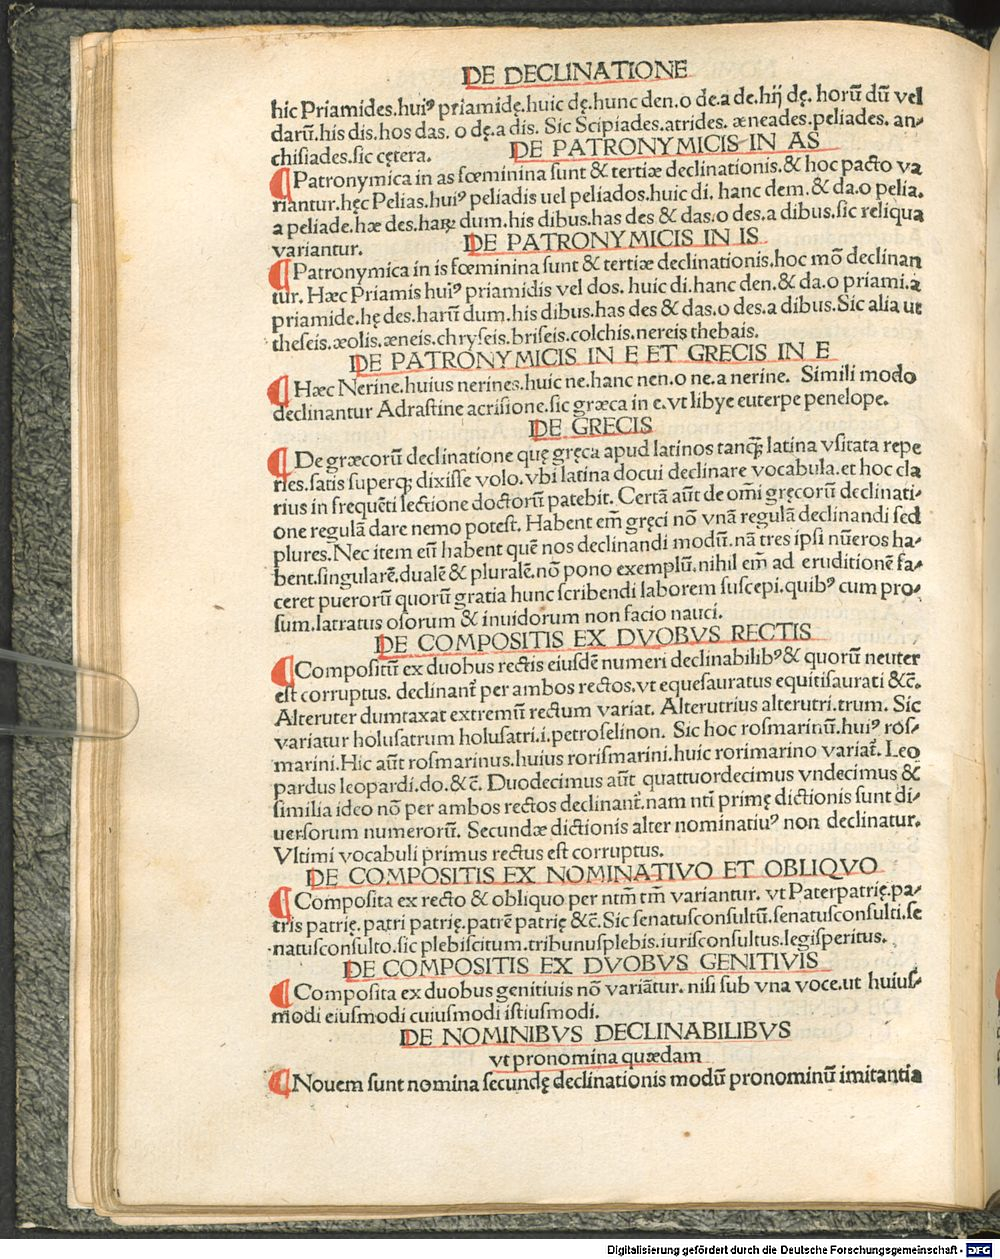 DE DECLINATIONE
hic Priamides.huiꝰ priamidę.huic dę.hunc den.o de.a de.hij dę. horū dū vel
darū.his dis.hos das. o dę.a dis. Sic Scipiades.atrides. æneades.peliades. an⸗
chisiades.sic cętera. DE PATRONYMICIS IN AS
¶ Patronymica in as fœminina sunt & tertiæ declinationis.& hoc pacto va
riantur.hęc Pelias.huiꝰ peliadis uel peliados.huic di. hanc dem.& da.o pelia.
a peliade.hæ des.haꝝ dum.his dibus.has des & das.o des.a dibus.sic reliqua
variantur. DE PATRONYMICIS IN IS
¶ Patronymica in is fœminina sunt & tertiæ declinationis.hoc mō declinan
tur. Hæc Priamis huiꝰ priamidis vel dos. huic di.hanc den.& da.o priami.a
priamide.hę des.harū dum.his dibus.has des & das.o des.a dibus.Sic alia ut
theseis.æolis.æneis.chryseis.briseis.colchis.nereis thebais.
DE PATRONYMICIS IN E ET GRECIS IN E
¶ Hæc Nerine.huius nerines.huic ne.hanc nen.o ne.a nerine. Simili modo
declinantur Adrastine acrisione.sic græca in e.vt libye euterpe penelope.
DE GRECIS
¶ De græcorū declinatione quę gręca apud latinos tanqꝫ latina vsitata repe
ries.satis superqꝫ dixisse volo.vbi latina docui declinare vocabula.et hoc cla
rius in frequēti lectione doctorū patebit. Certā aūt de om̄i gręcorū declinati⸗
one regulā dare nemo potest. Habent em̄ gręci nō vnā regulā declinandi sed
plures.Nec item eū habent quē nos declinandi modū.nā tres ipsi nūeros ha⸗
bent.singularē.dualē & pluralē.nō pono exemplū.nihil em̄ ad eruditionē fa⸗
ceret puerorū quorū gratia hunc scribendi laborem suscepi.quibꝰ cum pro⸗
sum.latratus osorum & inuidorum non facio nauci.
DE COMPOSITIS EX DVOBVS RECTIS
¶ Compositū ex duobus rectis eiusdē numeri declinabilibꝰ & quorū neuter
est corruptus. declinant᷑ per ambos rectos.vt equesauratus equitisaurati &c̄.
Alteruter dumtaxat extremū rectum variat. Alterutrius alterutri.trum. Sic
variatur holusatrum holusatri.i.petroselinon. Sic hoc rosmarinū.huiꝰ ros⸗
marini.Hic aūt rosmarinus.huius rorismarini.huic rorimarino variat᷑. Leo
pardus leopardi.do.&c̄. Duodecimus aūt quattuordecimus vndecimus &
similia ideo nō per ambos rectos declinant᷑.nam ntī primę dictionis sunt di⸗
uersorum numerorū. Secundæ dictionis alter nominatiuꝰ non declinatur.
Vltimi vocabuli primus rectus est corruptus.
DE COMPOSITIS EX NOMINATIVO ET OBLIQVO
¶ Composita ex recto & obliquo per ntm̄ tm̄ variantur. vt Paterpatrię.pa⸗
tris patrię.patri patrię.patrē patrię &c̄.Sic senatusconsultū.senatusconsulti.se
natusconsulto.sic plebiscitum.tribunusplebis.iurisconsultus.legisperitus.
DE COMPOSITIS EX DVOBVS GENITIVIS
¶ Composita ex duobus genitiuis nō variātur. nisi sub vna voce.ut huius⸗
modi eiusmodi cuiusmodi istiusmodi.
DE NOMINIBVS DECLINABILIBVS
vt pronomina quædam
¶ Nouem sunt nomina secundę declinationis modū pronominū imitantia
Digitalisierung gefördert durch die Deutsche Forschungsgemeinschaft - DFG